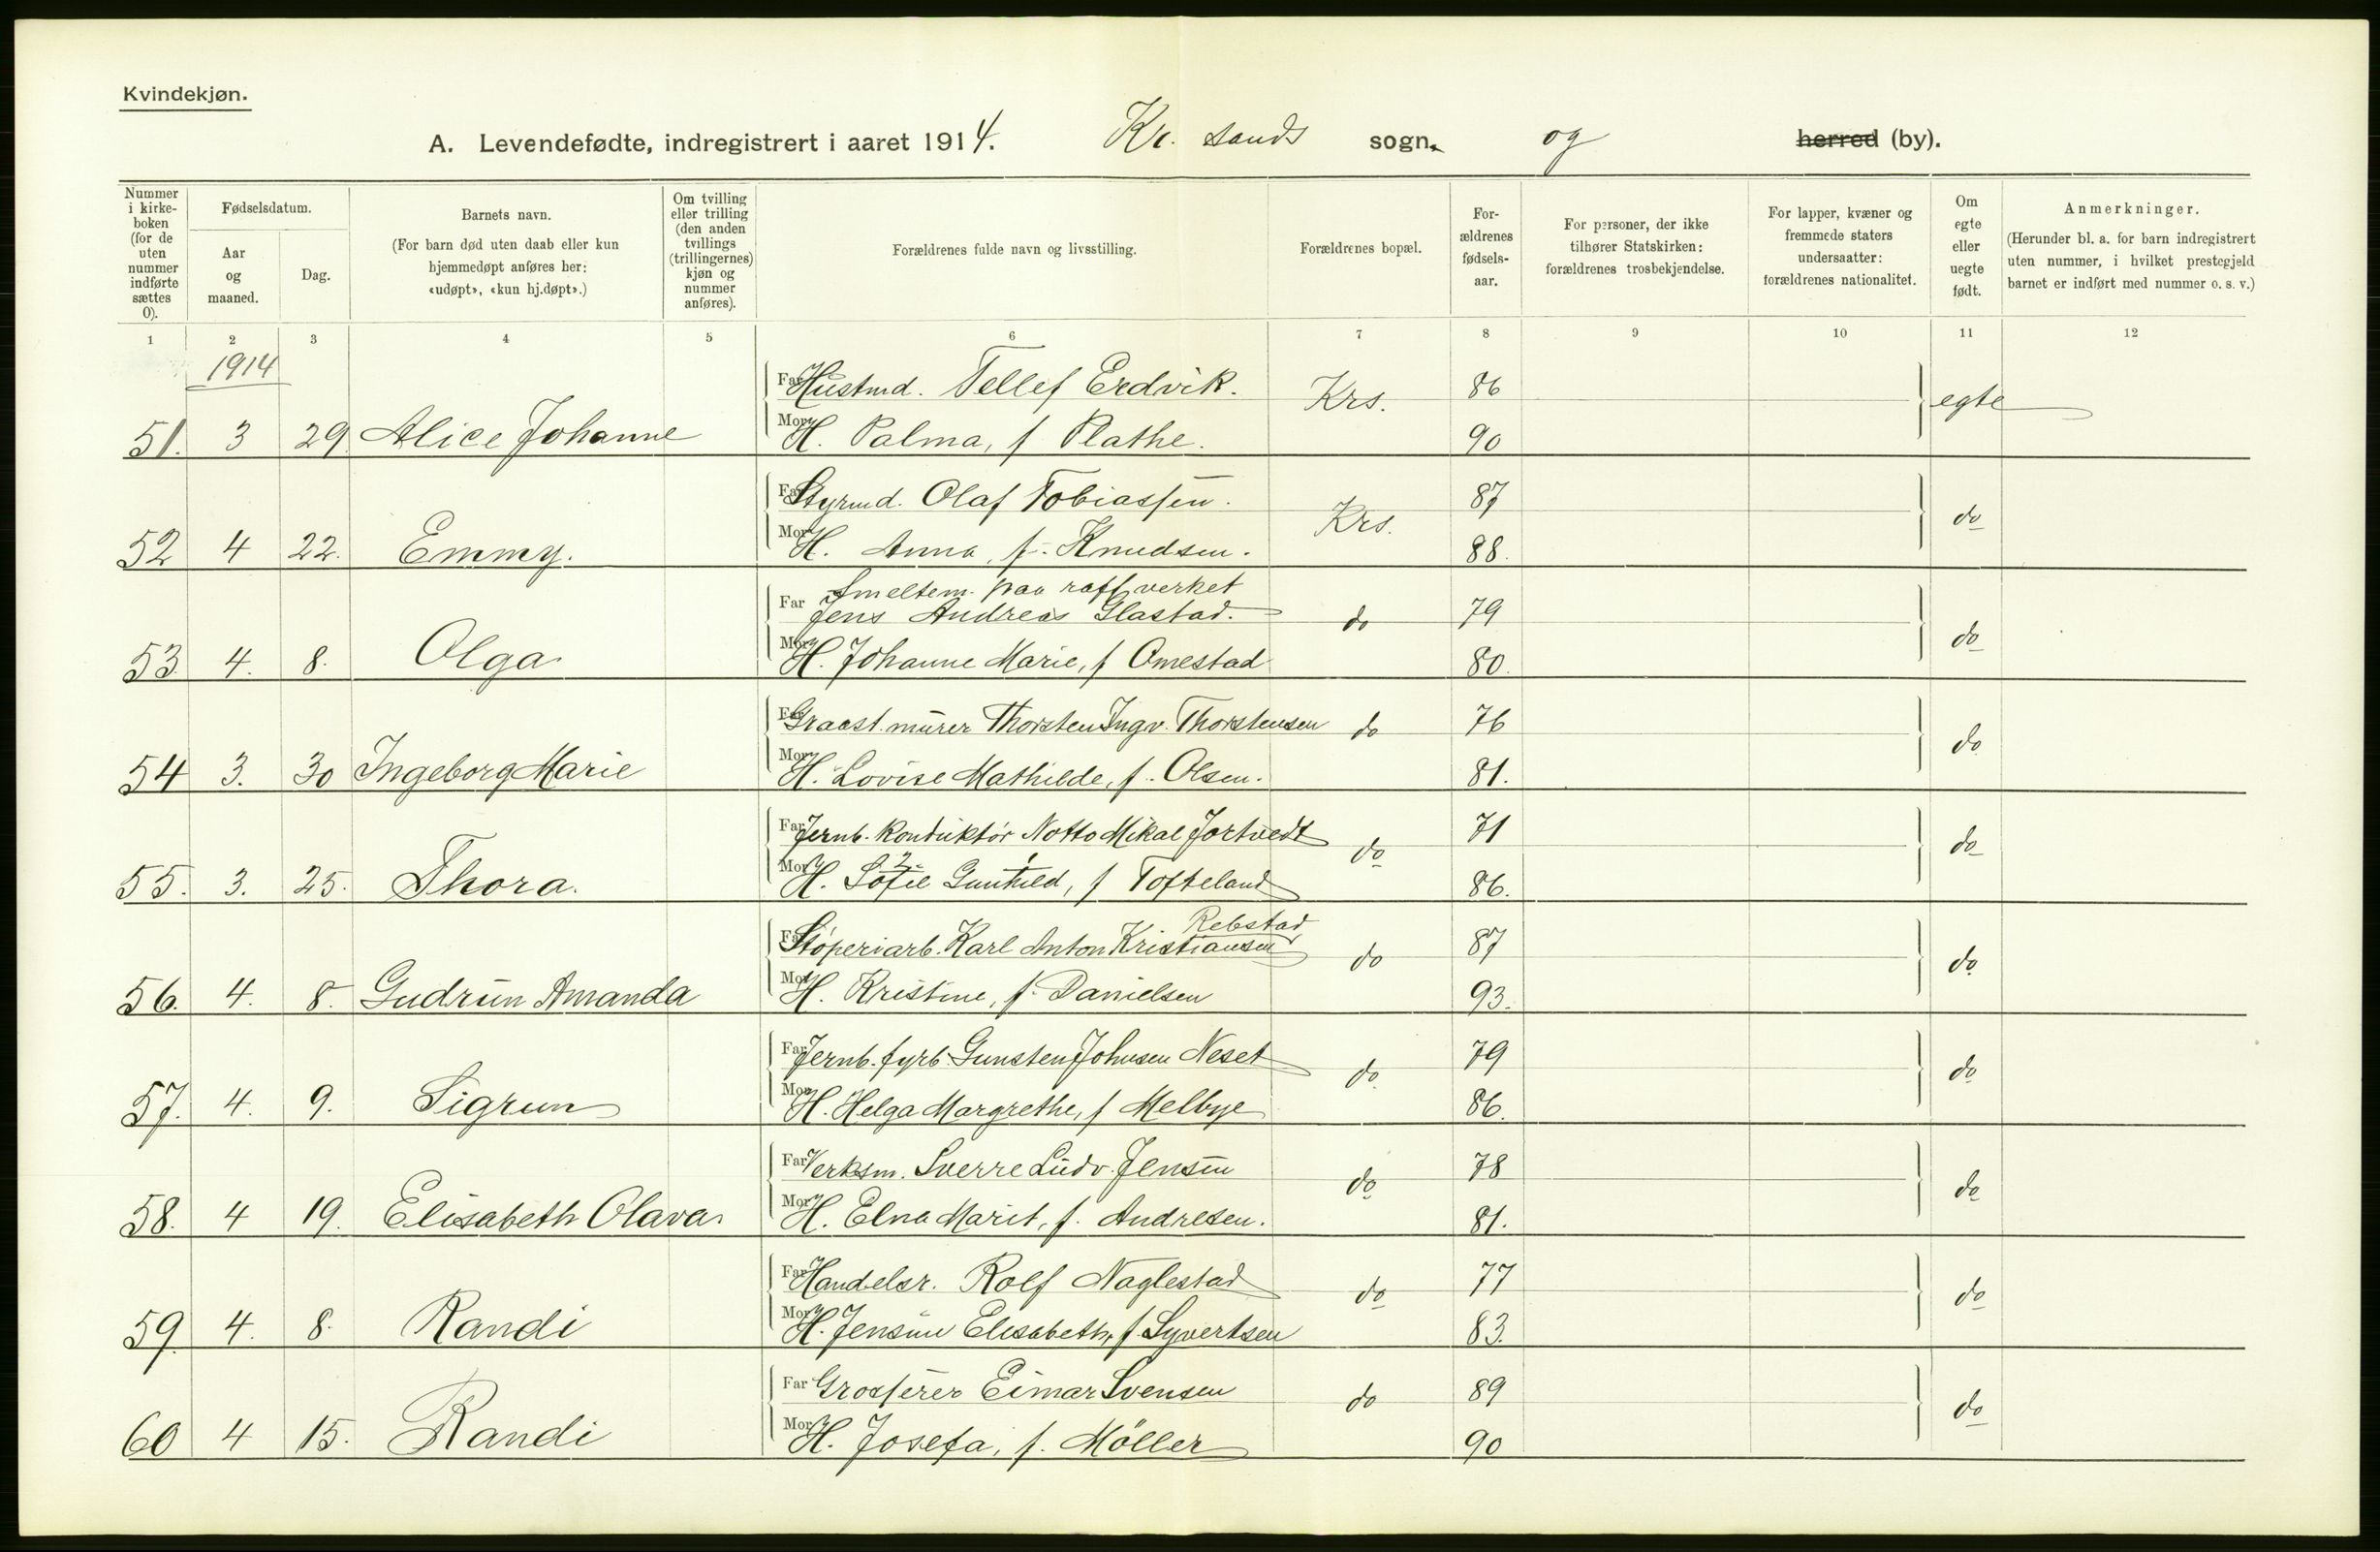 Kvindekjøn.
A. Levendefødte, indregistrert i aaret 1914. Kr. sands sogn, og herred (by).
Nummer i kirke-boken (for de uten nummer indførte sættes 0).
Fødselsdatum.
Aar og maaned.
Dag.
Barnets navn.
(For barn død uten daab eller kun hjemmedøpt anføres her: «udøpt», «kun hj.døpt».)
Om tvilling eller trilling (den anden tvillings (trillingernes) kjøn og nummer anføres).
Forældrenes fulde navn og livsstilling.
Forældrenes bopæl.
For-ældrenes fødsels-aar.
For personer, der ikke tilhører Statskirken: forældrenes trosbekjendelse.
For lapper, kvæner og fremmede staters undersaatter: forældrenes nationalitet.
Om egte eller uegte født.
Anmerkninger.
(Herunder bl. a. for barn indregistrert uten nummer, i hvilket prestegjeld barnet er indført med nummer o. s. v.)
1 2 3 4 5 6 7 8 9 10 11 12
1914
Far Hustmd. Tellef Eedvik. Krs. 86 egte
51. 3 29 Alice Johanne Mor H. Palma, f Plathe. 90
Far Styrmd. Olaf Tobiassen. Krs. 87 do
52 4 22. Emmy. Mor H. Anna, f. Knudsen. 88.
Smeltem. paa raff.verket
Far Jens Andreas Glastad. do 79 do
53 4. 8. Olga Mor H. Johanne Marie, f Omestad 80.
Far Graast. murer Thorsten Ingv. Thorstensen do 76 do
54 3. 30 Ingeborg Marie Mor H. Lovise Mathilde, f. Olsen. 81.
Far Jernb. konduktør Notto Mikal Jortvedt do 71 do
2. 1
55. 3. 25. Thora. Mor H. Sofie Gunhild, f Tofteland 86.
Rebstad
Far Støperiarb. Karl Anton Kristiansen do 87 do
56. 4. 8. Gudrun Amanda Mor H. Kristine, f. Danielsen 93.
Far Jernb. fyrb. Gunsten Johnsen Neset do 79 do
57. 4. 9. Sigrun Mor H. Helga Margrethe, f Melbye 86.
Far Verksm. Sverre Ludv. Jensen do 78 do
58. 4 19. Elisabeth Olava. Mor H. Elna Marit, f. Andresen. 81.
Far Handelsr. Rolf Naglestad do 77 do
59. 4. 8. Randi Mor H. Jensine Elisabeth, f. Syvertsen 83.
Far Grosserer Eimar Svensen do 89 do
60 4 15. Randi Mor H. Josefa, f. Möller 90